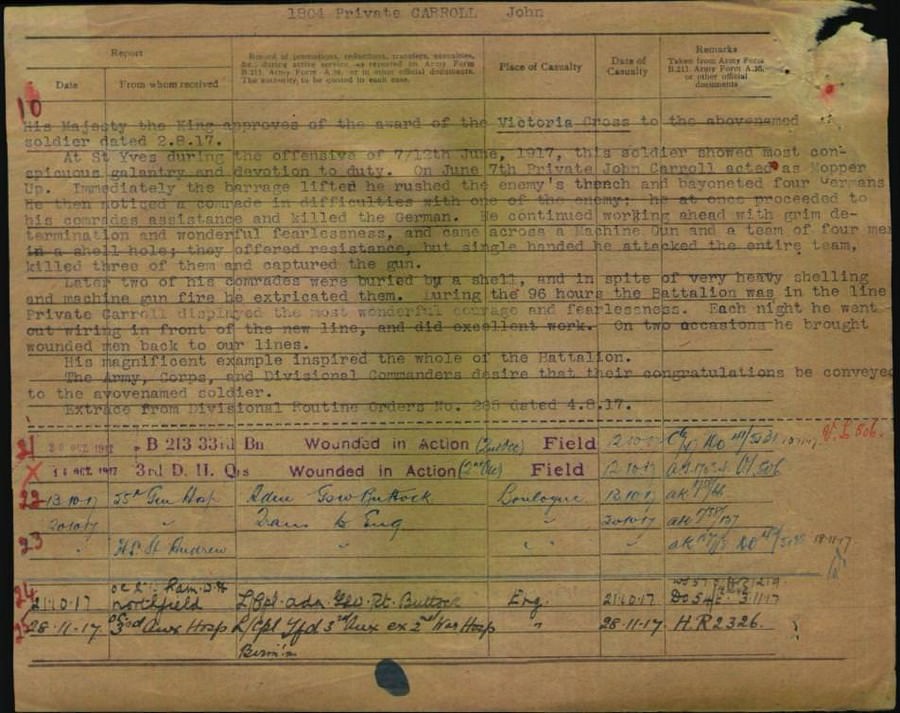 1804 Private CARROLL John
Report
Date
From whom received
Record of promotions, reductions, transfers, casualties, &c., during active service, as reported on Army Form B.213, Army Form A.36, or in other official documents. The authority to be quoted in each case.
Place of Casualty
Date of Casualty
Remarks
Taken from Army Form B.213, Army Form A.36, or other official documents
10
His Majesty the King approves of the award of the Victoria Cross to the abovenamed
soldier dated 2.8.17.
At St Yves during the offensive of 7/12th June, 1917, this soldier showed most con-
spicuous galantry and devotion to duty. On June 7th Private John Carroll acted as Mopper
Up. Immediately the barrage lifted he rushed the enemy's thench and bayoneted four Germans
He then noticed a comrade in difficulties with one of the enemy; he at once proceeded to
his comrades assistance and killed the German. He continued working ahead with grim de-
termination and wonderful fearlessness, and came across a Machine Gun and a team of four men
in a shell hole; they offered resistance, but single handed he attacked the entire team,
killed three of them and captured the gun.
Later two of his comrades were buried by a shell, and in spite of very heavy shelling
and machine gun fire he extricated them. During the 96 hours the Battalion was in the line
Private Carroll displayed the most wonderful courage and fearlessness. Each night he went
out wiring in front of the new line, and did excellent work. On two occasions he brought
wounded men back to our lines.
His magnificent example inspired the whole of the Battalion.
The Army, Corps, and Divisional Commanders desire that their congratulations be conveyed
to the avovenamed soldier.
Extrace from Divisional Routine Orders No. 285 dated 4.8.17.
21 OCT. 1917 B 213 33rd Bn Wounded in Action Field 12.10.17
OCT. 1917 3rd D. H. Qrs Wounded in Action (2nd Occ) Field 12.10.17
22 13.10.17 25th Gen Hosp Adm Gsw Buttock Boulogne 12.10.17
20.10.17 " Trans to Eng " 20.10.17
23 " H.S. St Andrew " " "
24 21.10.17 Northfield L/Cpl adm. Gsw. Rt. Buttock Eng. 21.10.17 3.11.17
28-11-17. 3rd Aux Hosp L/Cpl Tfd 3rd Aux ex 2nd War Hosp " 28-11-17 H.R 2326.
Birm'm